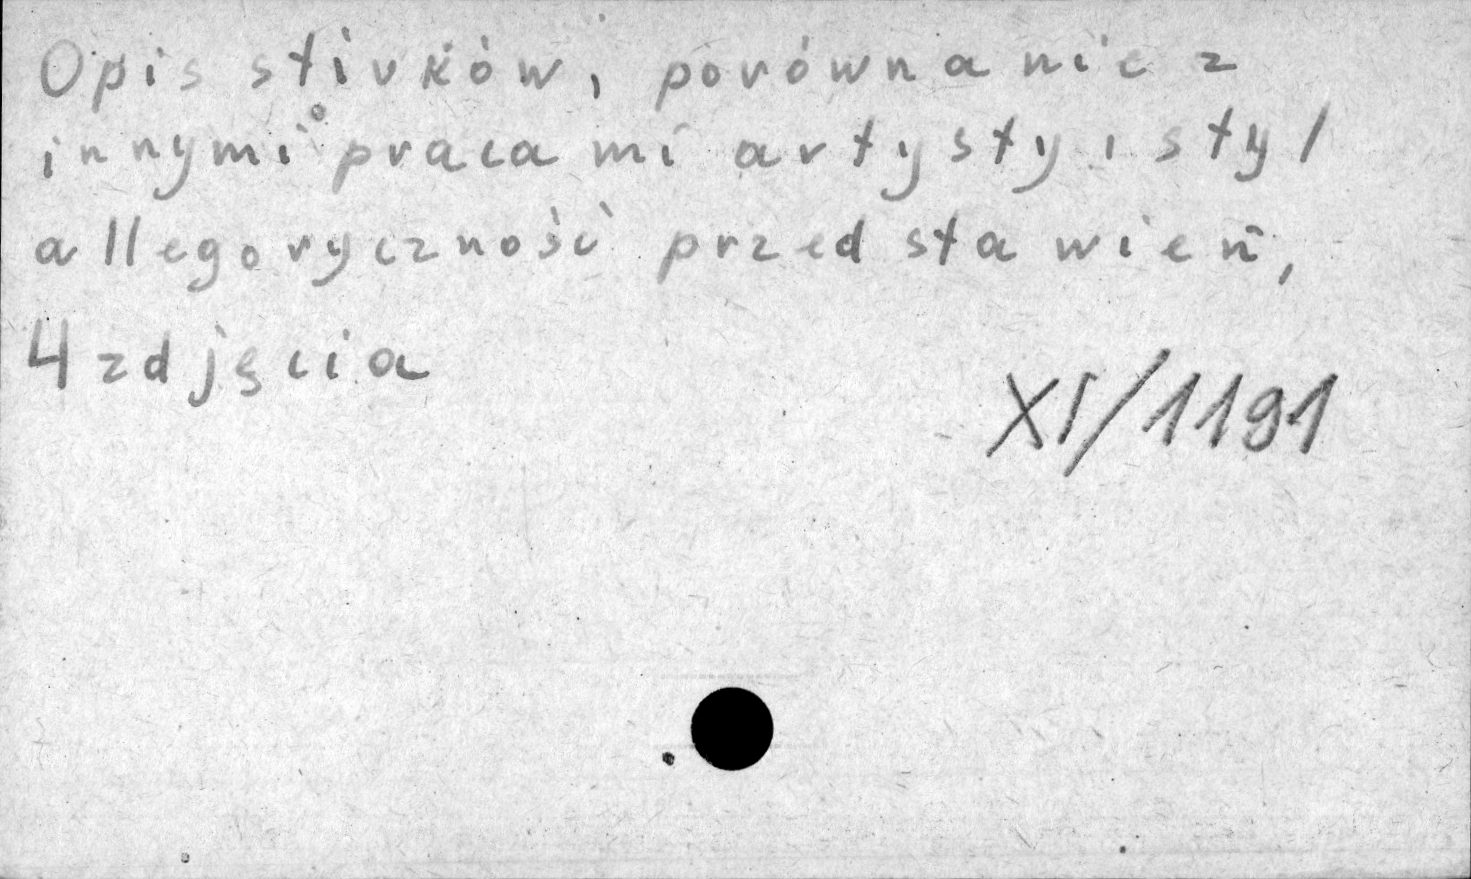 Opis stiuków, porównanie z
innymi pracami artysty, styl
allegoryczność przedstawień,
4 zdjęcia
XI/1191